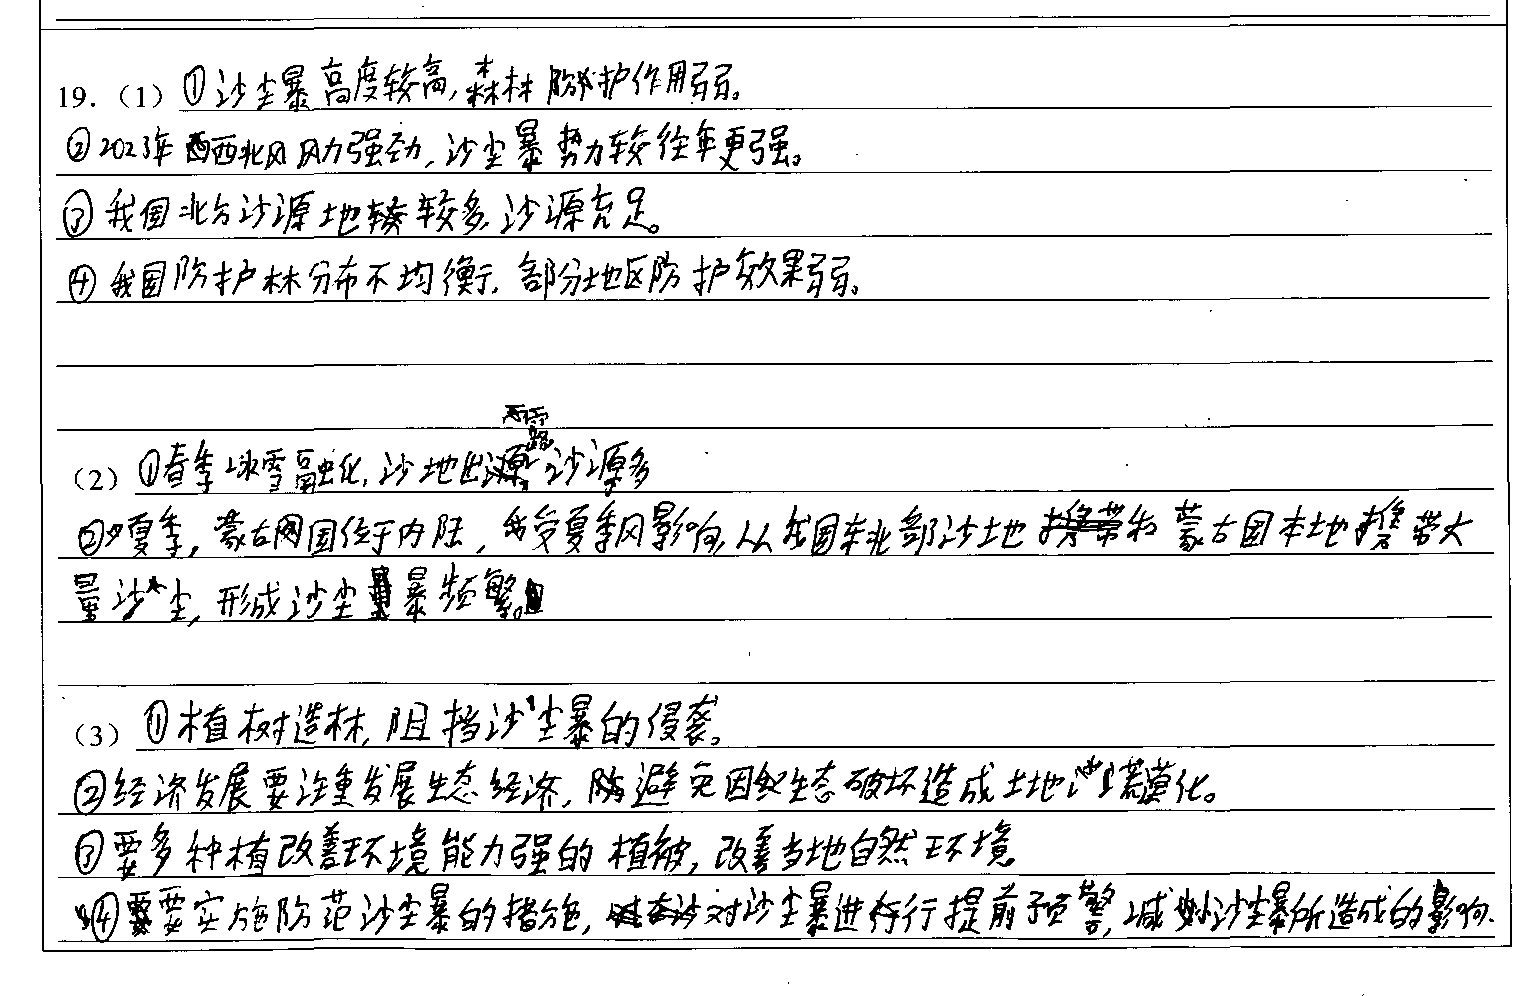 19.（1）①沙尘暴高度较高,森林防护作用弱。
②2023年西北风风力强劲,沙尘暴势力较往年更强。
③我国北方沙源地较多,沙源充足。
④我国防护林分布不均衡,部分地区防护效果弱。
（2）①春季冰雪融化,沙地出露,沙源多
②夏季,蒙古国位于内陆,受夏季风影响,从我国东北部沙地和蒙古国本地携带大
量沙尘,形成沙尘暴频繁。
（3）①植树造林,阻挡沙尘暴的侵袭。
②经济发展要注重发展生态经济,避免因生态破坏造成土地荒漠化。
③要多种植改善环境能力强的植被,改善当地自然环境
④要实施防范沙尘暴的措施,对沙尘暴进行提前预警,减少沙尘暴所造成的影响.